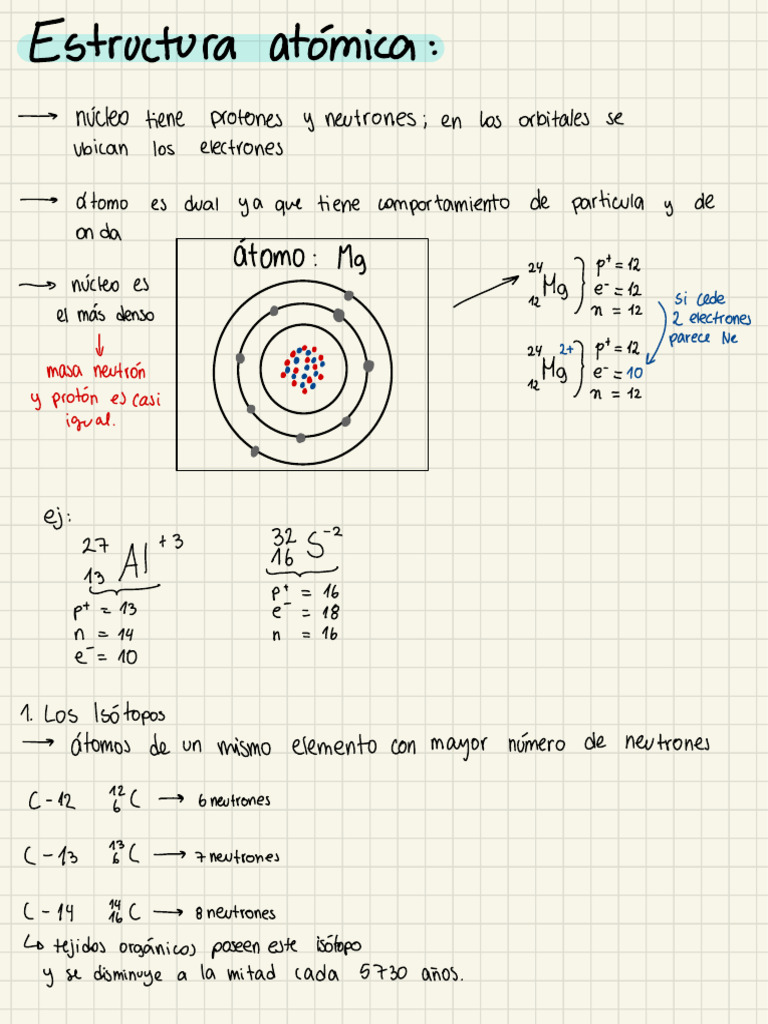 Estructura atómica:
→ núcleo tiene protones y neutrones; en los orbitales se
ubican los electrones
→ átomo es dual ya que tiene comportamiento de particula y de
onda
→ núcleo es
el más denso
↓
masa neutrón
y protón es casi
igual.
átomo: Mg
²⁴₁₂Mg } p⁺ = 12
e⁻ = 12
n = 12
si cede
2 electrones
parece Ne
²⁴₁₂Mg²⁺ } p⁺ = 12
e⁻ = 10
n = 12
ej:
²⁷₁₃Al⁺³
p⁺ = 13
n = 14
e⁻ = 10
³²₁₆S⁻²
p⁺ = 16
e⁻ = 18
n = 16
1. Los Isótopos
→ átomos de un mismo elemento con mayor número de neutrones
C-12 ¹²₆C → 6 neutrones
C-13 ¹³₆C → 7 neutrones
C-14 ¹⁴₁₆C → 8 neutrones
↳ tejidos orgánicos poseen este isótopo
y se disminuye a la mitad cada 5730 años.